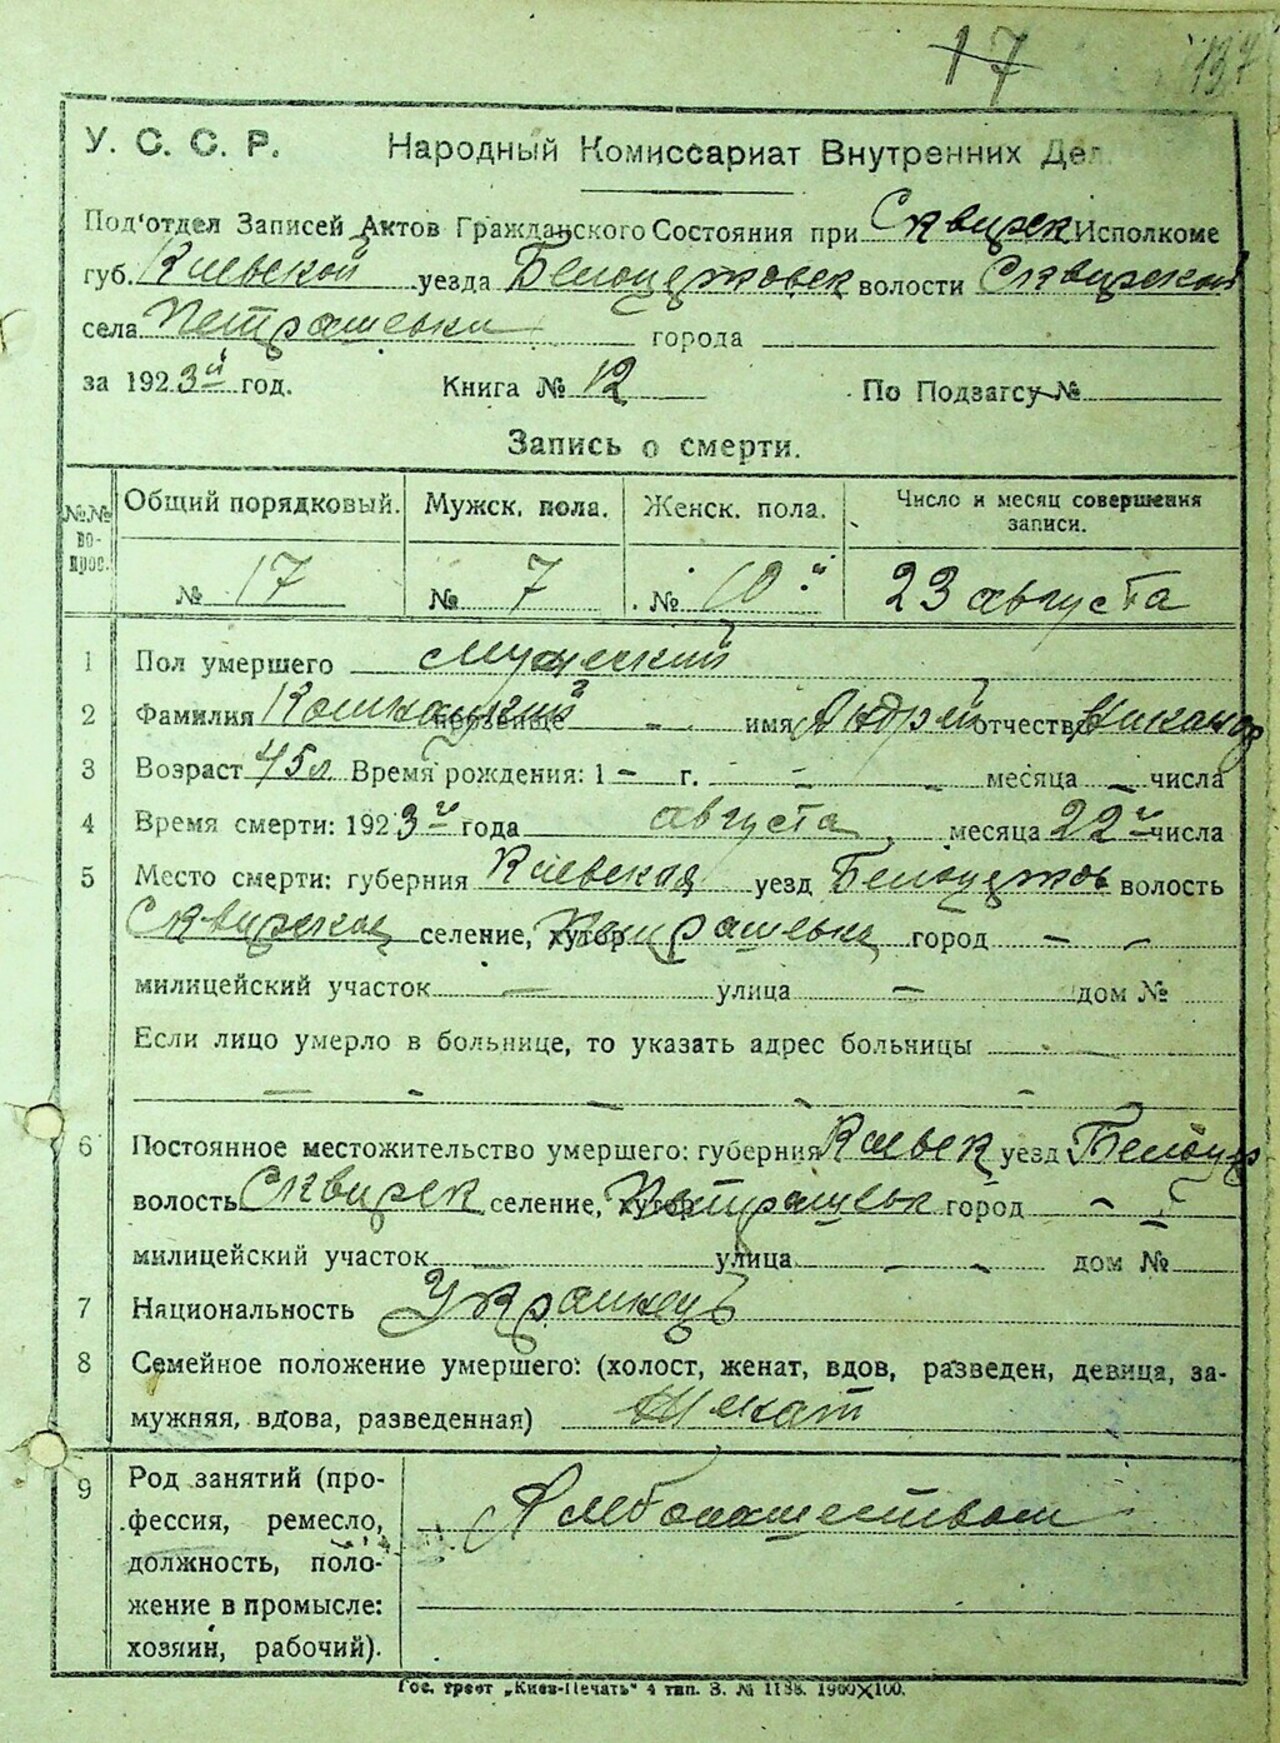 17 137
У. С. С. Р. Народный Комиссариат Внутренних Дел.
Под'отдел Записей Актов Гражданского Состояния при Сквирск Исполкоме
губ. Киевской уезда Белоцерковск волости Сквирской
села Петрашевки города
за 1923й год. Книга № 12 По Подзагсу №
Запись о смерти.
№№ во- прос. Общий порядковый. Мужск. пола. Женск. пола. Число и месяц совершения записи.
№ 17 № 7 № 10й 23 августа
1 Пол умершего мужеский
2 Фамилия прозвище - - имя Андрей отчество Никанор
3 Возраст 45 л Время рождения: 1 - г. - - месяца - числа
4 Время смерти: 1923го года августа месяца 22го числа
5 Место смерти: губерния Киевская уезд Белоцерков волость
Сквирская селение, хутор Петрашевка город - -
милицейский участок - улица - дом №
Если лицо умерло в больнице, то указать адрес больницы - -
- - - - -
6 Постоянное местожительство умершего: губерния Киевск уезд Белоцер
волость Сквирск селение, хутор Петрашевк город - -
милицейский участок - улица - - дом №
7 Национальность Украинец
8 Семейное положение умершего: (холост, женат, вдов, разведен, девица, за-
мужняя, вдова, разведенная) Женат
9 Род занятий (про-
фессия, ремесло, Хлебопашеством
должность, поло-
жение в промысле:
хозяин, рабочий).
Гос. трест „Киев-Печать“ 4 тип. З. № 1138. 1900×100.